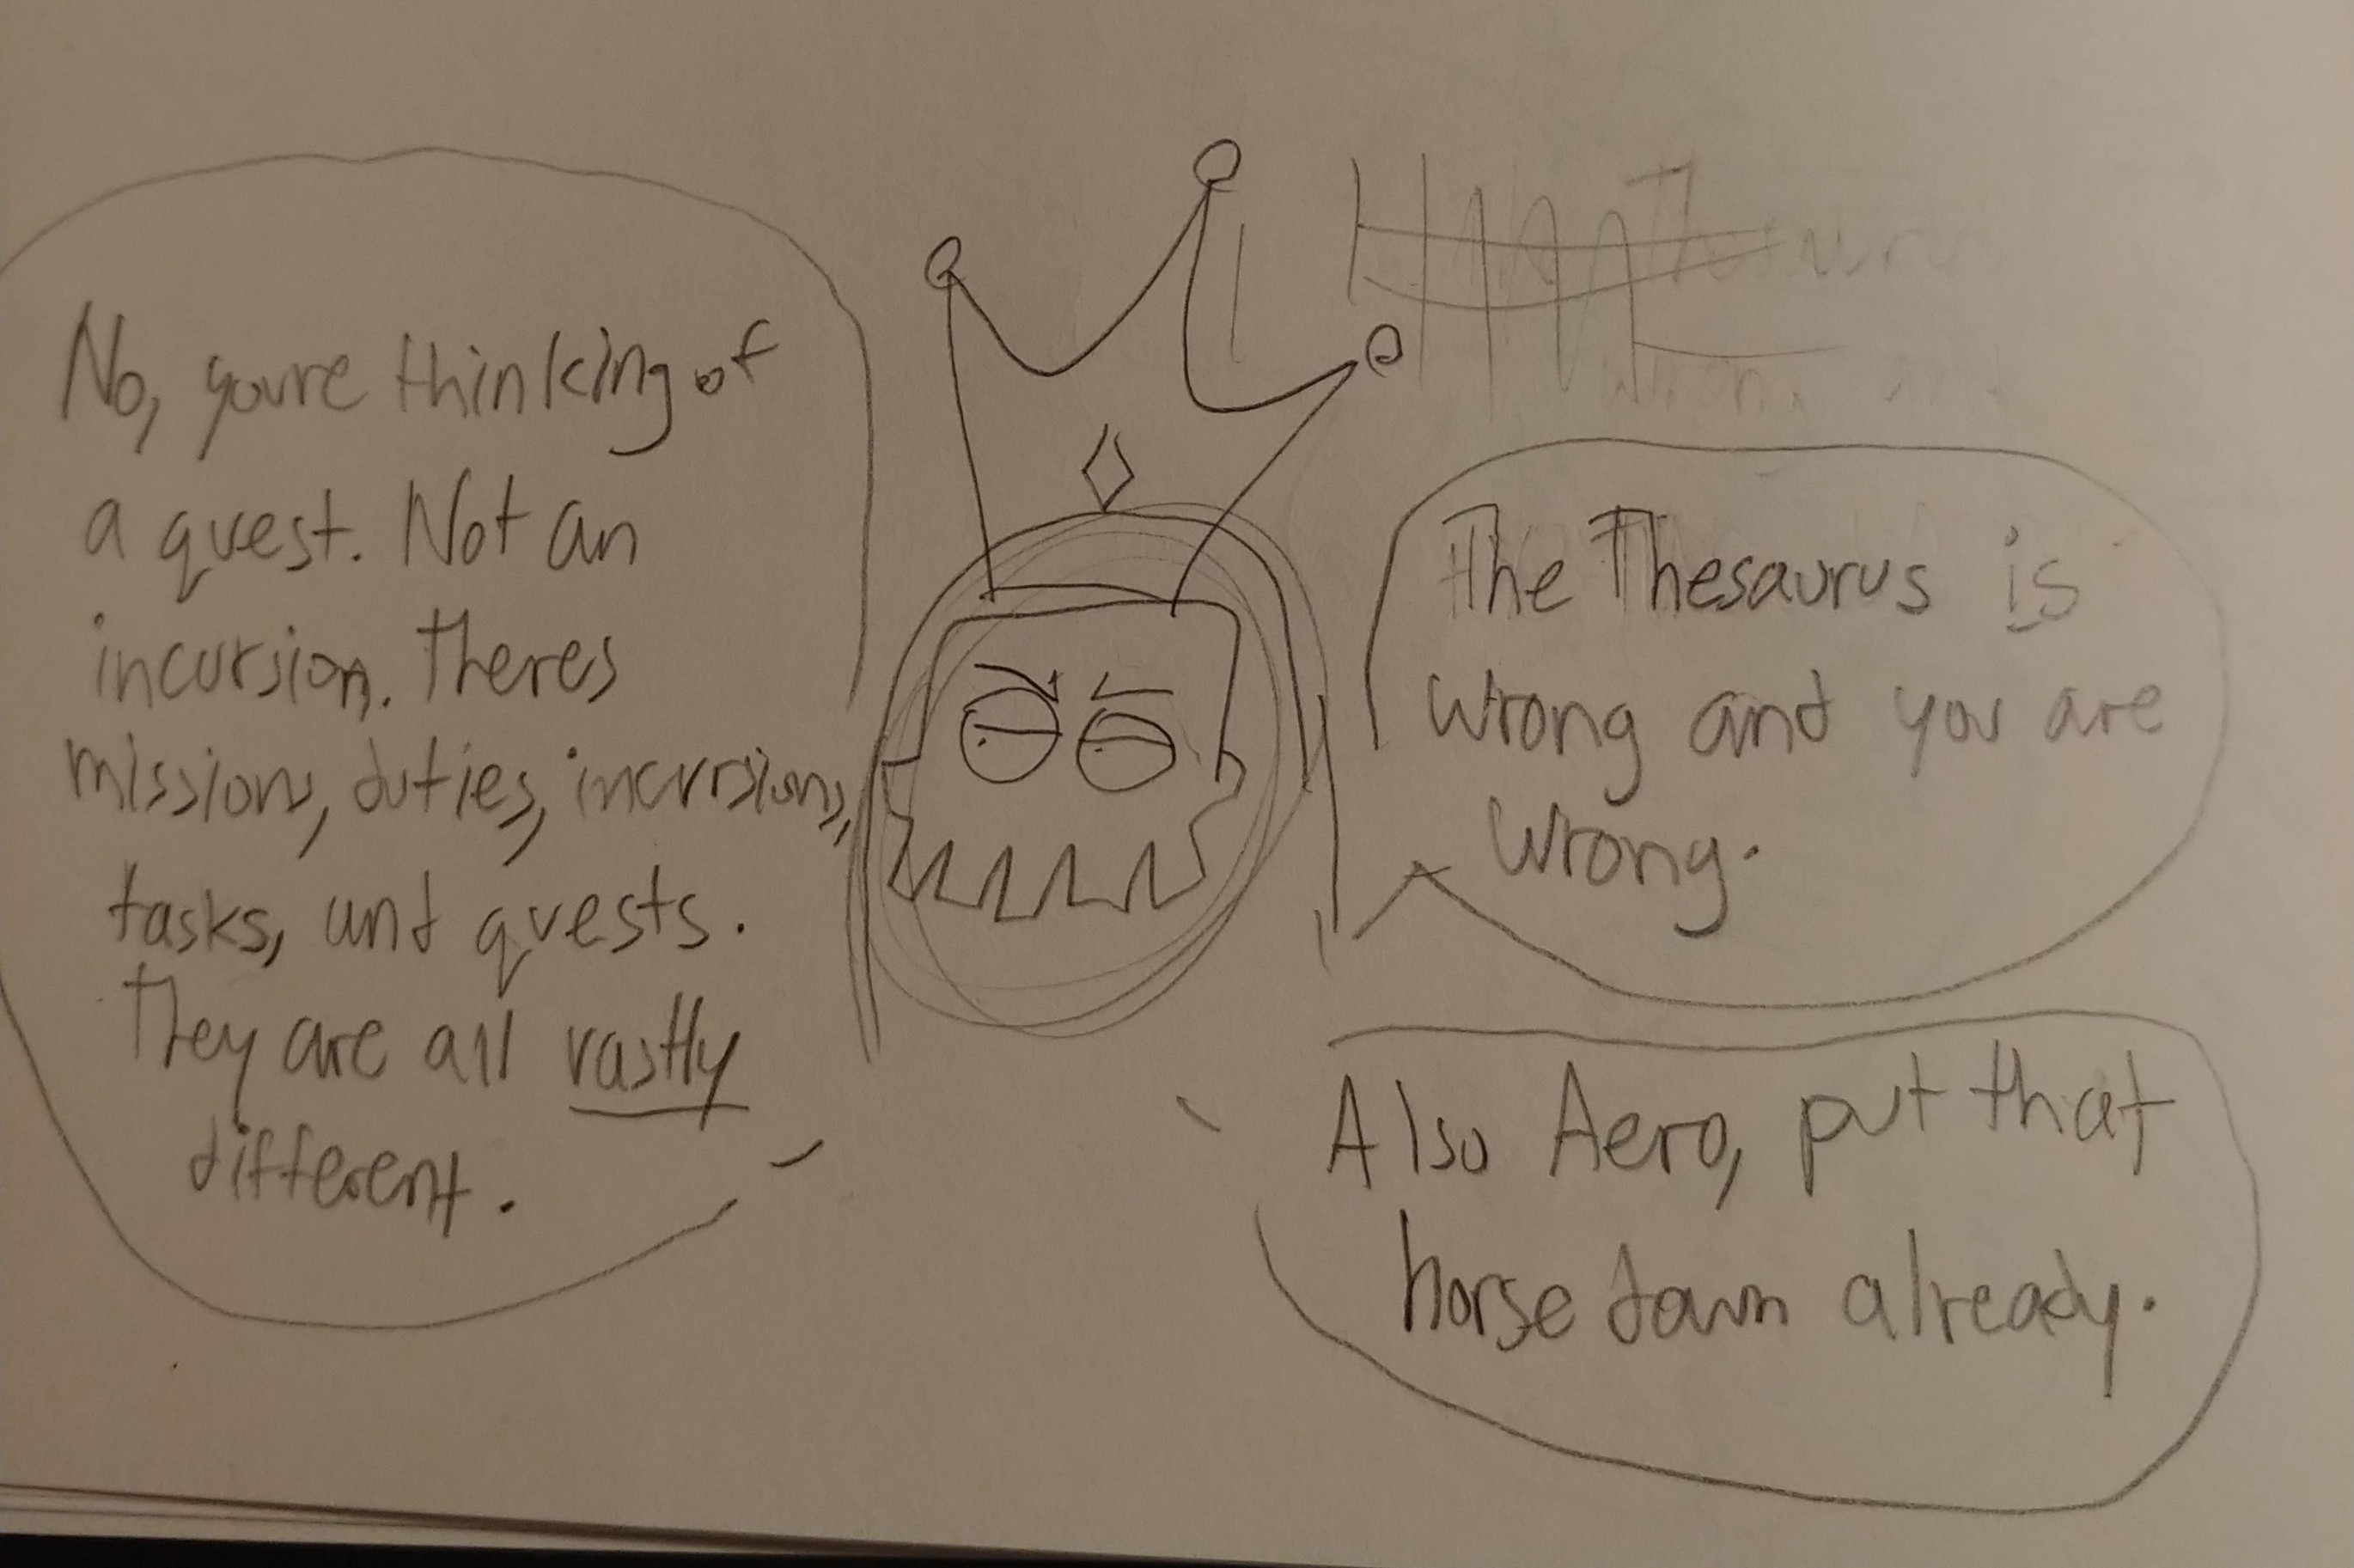 No, youre thinking of
a quest. Not an
incursion. Theres
missions, duties, incursions,
tasks, and quests.
They are all vastly
different.
Thesaurus
wrong and
The Thesaurus is
wrong and you are
wrong.
Also Aero, put that
horse down already.